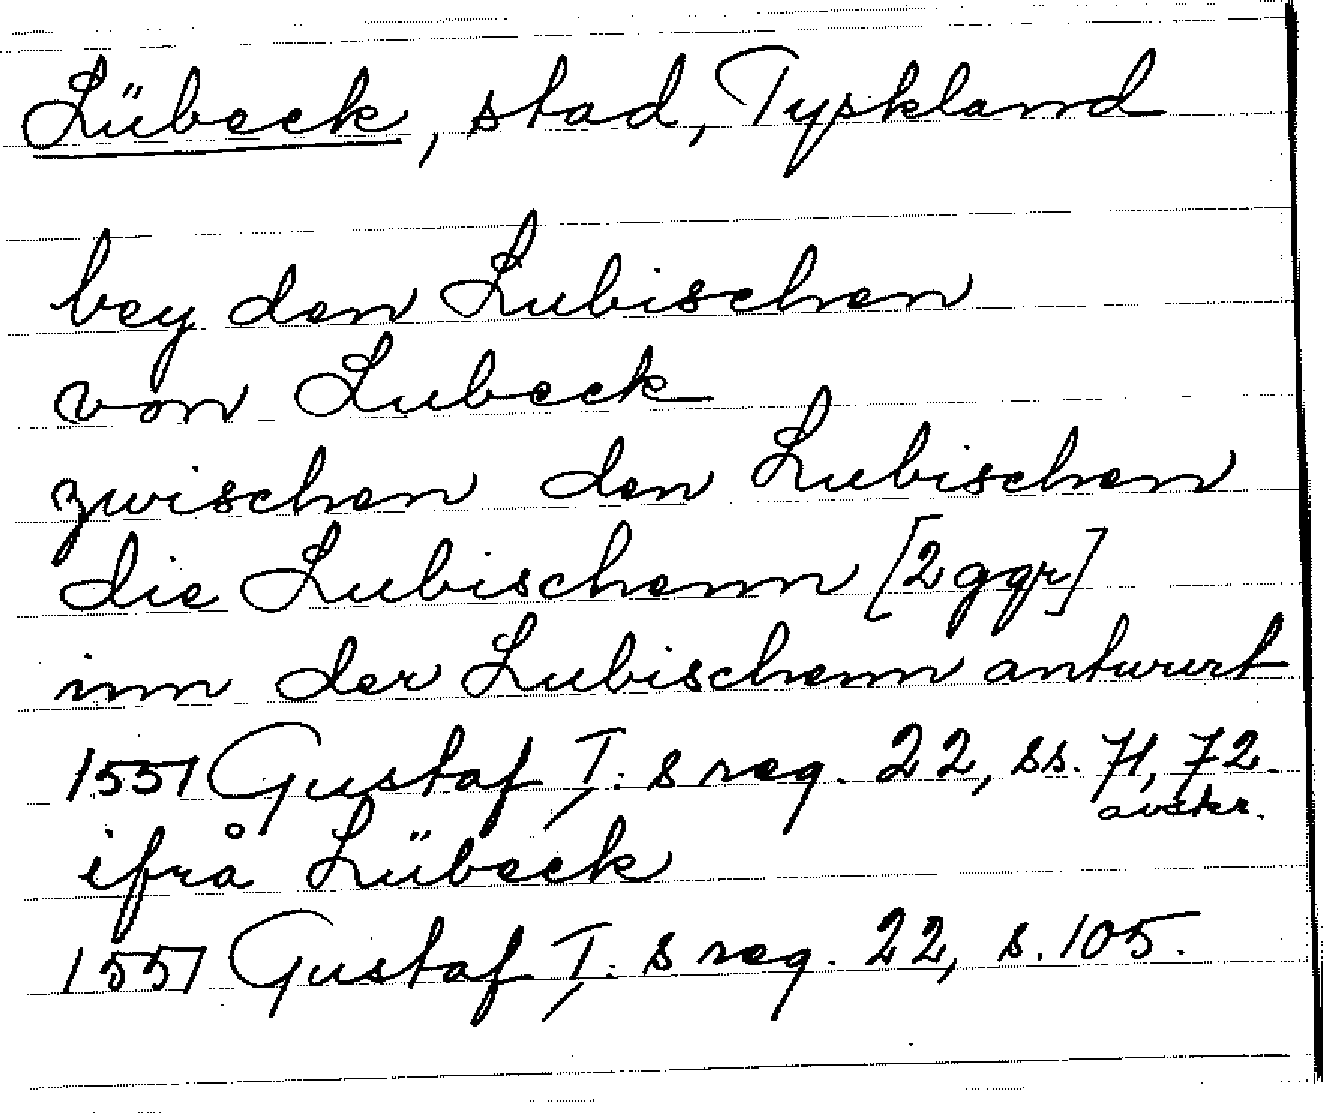 Lübeck, stad, Tyskland
bey den Lubischen
von Lubeck
zwischen den Lubischen
die Lubischenn [2 ggr]
inn der Lubischenn antwurt
1551 Gustaf I:s reg. 22, ss. 71, 72
avskr.
ifrå Lübeck
1551 Gustaf I:s reg. 22, s. 105.